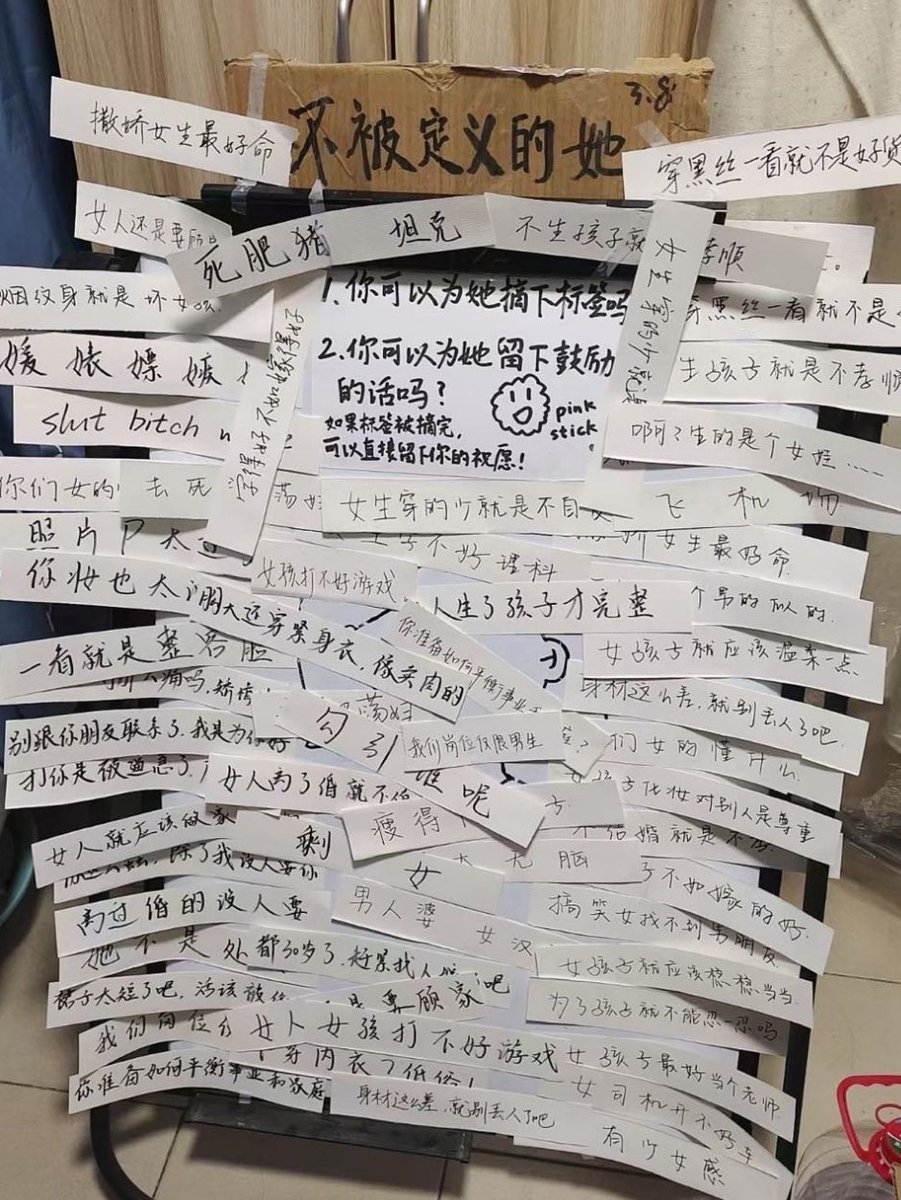 3.8
不被定义的她
撒娇女生最好命
穿黑丝一看就不是好货
女人还是要顾
死肥猪 坦克
不生孩子就
孝顺
烟纹身就是坏女
1.你可以为她摘下标签吗
女生穿的少就
穿黑丝一看就不是
媛 婊 嫖 嫉
2.你可以为她留下鼓励
的话吗?
如果标签被摘完,
可以直接留下你的祝愿!
pink
stick
生孩子就是不孝顺
slut bitch
啊?生的是个女娃……
干得好不如嫁得好
你们女的
去死
荡妇
女生穿的少就是不自
飞机场
照片P太
不好理科
女生最好命
你妆也太
女孩打不好游戏
人生了孩子才完整
个男的似的
胸大还穿紧身衣,像卖肉的
你准备如何平衡事业
一看就是整容脸
女孩子就应该温柔一点
痛吗,矫情
荡妇
身材这么差,就别丢人了吧
别跟你朋友联系了,我是为你好
勾引
我们岗位仅限男生
们女的懂什么
打你是被逼急了
女人离了婚就不值
谁呢
女孩子化妆对别人是尊重
瘦得
女人就应该做家
剩
大无脑
不结婚就是不
除了我没人要你
女
不如嫁的好
离过婚的没人要
男人婆 女汉
搞笑女找不到男朋友
她不是处
都30岁了,赶紧找人
吧
女孩子就应该稳稳当当
裙子太短了吧,活该被
要顾家
为了孩子就不能忍一忍吗
我们岗位
女人女孩打不好游戏
女孩子最好当个老师
内衣
你准备如何平衡事业和家庭
身材这么差,就别丢人了吧
女司机开不好车
有少女感